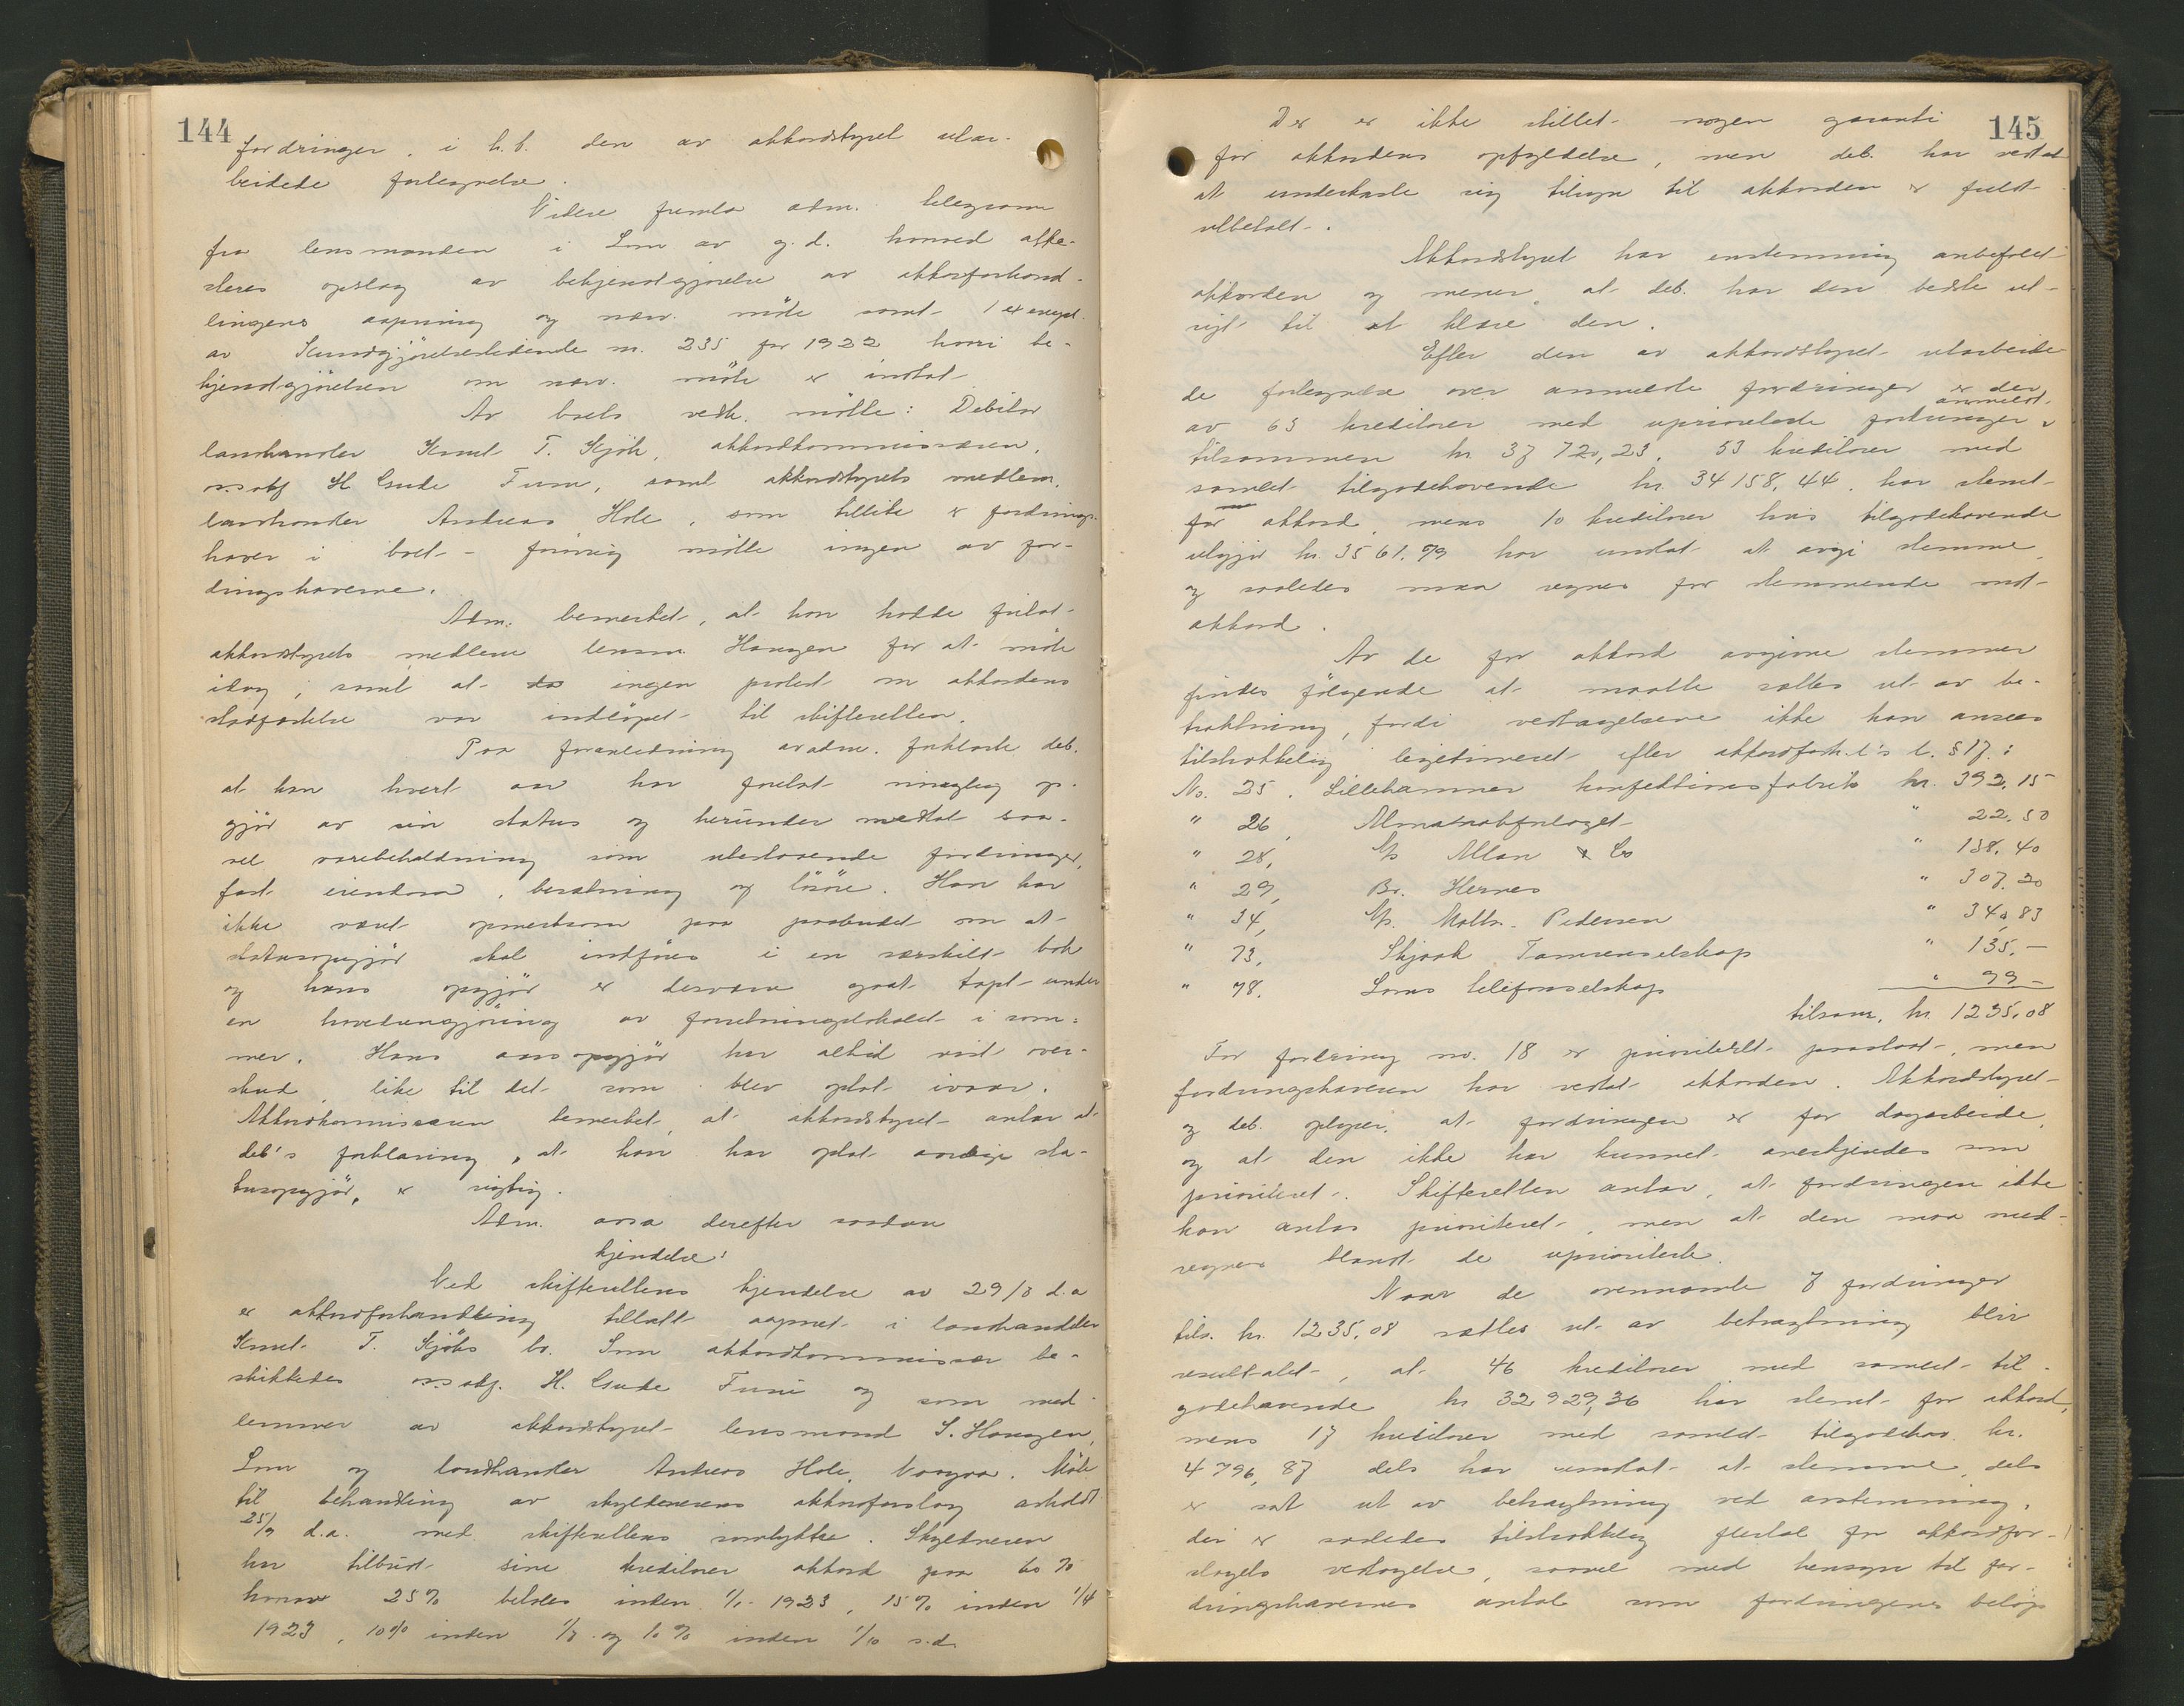 144
fordringer, i h.t. den av akkordstyret utar-
beidede fortegnelse.
Videre fremla adm. telegram
fra lensmanden i Lom av g.d. hvorved atte-
steres opslag av bekjendtgjørelse av akkordforhand-
lingens aapning og nærv. møte samt 1 exempl.
av Kundgjørelsestidende nr. 235 for 1922 hvori be-
kjendtgjørelsen om nærv. møte er indtat
Av boets vedk. møtte: Debitor
landhandler Knut T. Kjøk, akkordkommissæren,
o.r.sakf. H. Gude Furu, samt akkordstyrets medlem,
landhandler Andreas Hole, som tillike er fordrings-
haver i boet - forøvrig møtte ingen av for-
dringshaverne.
Adm. bemerket, at han hadde fritat
akkordstyrets medlem lensm. Haugen for at møte
idag, samt at ingen protest om akkordens
stadfæstelse var indløpet til skifteretten.
Paa foranledning av adm. forklarte deb.
at han hvert aar har foretat nøiagtig op-
gjør av sin status og herunder medtat saa-
vel varebeholdning som utestaaende fordringer,
fast eiendom, besætning og løsøre. Han har
ikke været opmerksom paa paabudet om at
statusopgjør skal indføres i en særskilt bok
og hans opgjør er desværre gaat tapt under
en hovedrengjøring av forretningslokalet i som-
mer. Hans aarsopgjør har altid vist over-
skud, like til det som blev optat ivaar.
Akkordkommissæren bemerket, at akkordstyret antar at
deb's forklaring, at han har optat aarlige sta-
tusopgjør, er rigtig.
Adm. avsa derefter saadan
kjendelse:
Ved skifterettens kjendelse av 29/8 d.a
er akkordforhandling tillatt aapnet i landhandler
Knut T. Kjøks bo. Som akkordkommissær be-
skikkedes o.r.sakf. H. Gude Furu og som med-
lemmer av akkordstyret lensmand S. Haugen,
Lom og landhandler Andreas Hole, Vaagaa. Møte
til behandling av skyldnerens akkordforslag avholdt
25/9 d.a. med skifterettens samtykke. Skyldneren
har tilbudt sine kreditorer akkord paa 60 %
hvorav 25 % betales inden 1/1 1923, 15 % inden 1/4
1923, 10 % inden 1/7 og 10 % inden 1/10 s.a.
145
Der er ikke stillet nogen garanti
for akkordens opfyldelse, men deb. har vedtat
at underkaste sig tilsyn til akkorden er fuldt
utbetalt.
Akkordstyret har enstemmig anbefalet
akkorden og mener, at deb. har den bedste ut-
sigt til at klare den.
Efter den av akkordstyret utarbeide-
de fortegnelse over anmeldte fordringer er der
av 63 kreditorer med uprioriterte fordringer anmeldt
tilsammen kr. 37 720,23. 53 kreditorer med
samlet tilgodehavende kr. 34 158,44 har stemt
for akkord, mens 10 kreditorer hvis tilgodehavende
utgjør kr. 3561,79 har undlat at avgi stemme
og saaledes maa regnes for stemmende mot
akkord.
Av de for akkord avgivne stemmer
findes følgende at maatte sættes ut av be-
traktning, fordi vedtagelsene ikke kan ansees
tilstrækkelig legitimeret efter akkordforh.l's l. § 17:
No. 25, Lillehammer konfektionsfabrik kr. 392,15
" 26, " 22,50
" 28, A/s Allan & Co " 138,40
" 29, Br. Hernes " 307,20
" 34, A/s Math. Pedersen " 340,83
" 73, Skjaak Tamrenselskap " 135,-
" 78, Loms telefonselskap " 99,-
tilsam. kr. 1235,08
For fordring no. 18 er prioritet paastaat, men
fordringshaveren har vedtat akkorden. Akkordstyret
og deb. oplyser, at fordringen er for dagarbeide,
og at den ikke har kunnet anerkjendes som
prioriteret. Skifteretten antar, at fordringen ikke
kan antas prioriteret, men at den maa med-
regnes blandt de uprioriterte.
Naar de ovennævnte 7 fordringer
tils. kr. 1235,08 sættes ut av betragtning blir
resultatet, at 46 kreditorer med samlet til-
godehavende kr 32 929,36 har stemt for akkord,
mens 17 kreditorer med samlet tilgodehav. kr.
4 796,87 dels har undlat at stemme, dels
er sat ut av betragtning ved avstemning.
der er saaledes tilstrækkelig flertal for akkordfor-
slagets vedtagelse, saavel med hensyn til for-
dringshavernes antal som fordringenes beløp